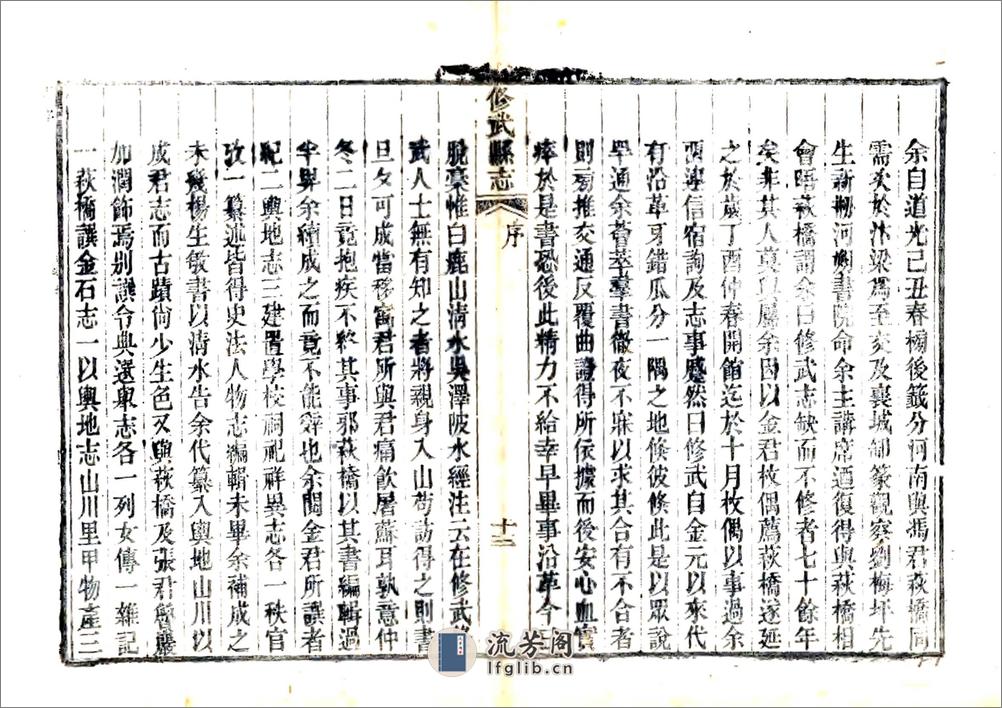 余自道光己丑春榜後籤分河南與馮君萩橋同
需次於汴梁為至交及襄城卸篆觀察劉梅坪先
生新刱河朔書院命余主講席迺復得與萩橋相
會晤萩橋謂余曰修武志缺而不修者七十餘年
矣非其人莫與屬余因以金君枚偶薦萩橋遂延
之於歲丁酉仲春開館迄於十月枚偶以事過余
西遷信宿詢及志事蹙然曰修武自金元以來代
有沿革牙錯瓜分一隅之地倏彼倏此是以眾說
罕通余薈萃羣書徹夜不寐以求其合有不合者
則旁推交通反覆曲證得所依據而後安心血實
瘁於是書恐後此精力不給幸早畢事沿革今已
修武縣志 序 十三
脫稾惟白鹿山清水吳澤陂水經注云在修武
武人士無有知之者將親身入山苟訪得之則書
旦夕可成當移寓君所與君痛飲屠蘇耳孰意仲
冬二日竟抱疾不終其事邪萩橋以其書編輯過
半畀余續成之而竟不能辭也余閱金君所譔者
紀二輿地志三建置學校祠祀祥異志各一秩官
攷一纂述皆得史法人物志編輯未畢余補成之
未幾楊生敏書以清水告余代纂入輿地山川以
成君志而古蹟尚少生色又與萩橋及張君
加潤飾焉別譔令典選舉志各一列女傳一雜記
一萩橋譔金石志一以輿地志山川里甲物產三
流芳阁
lfglib.cn